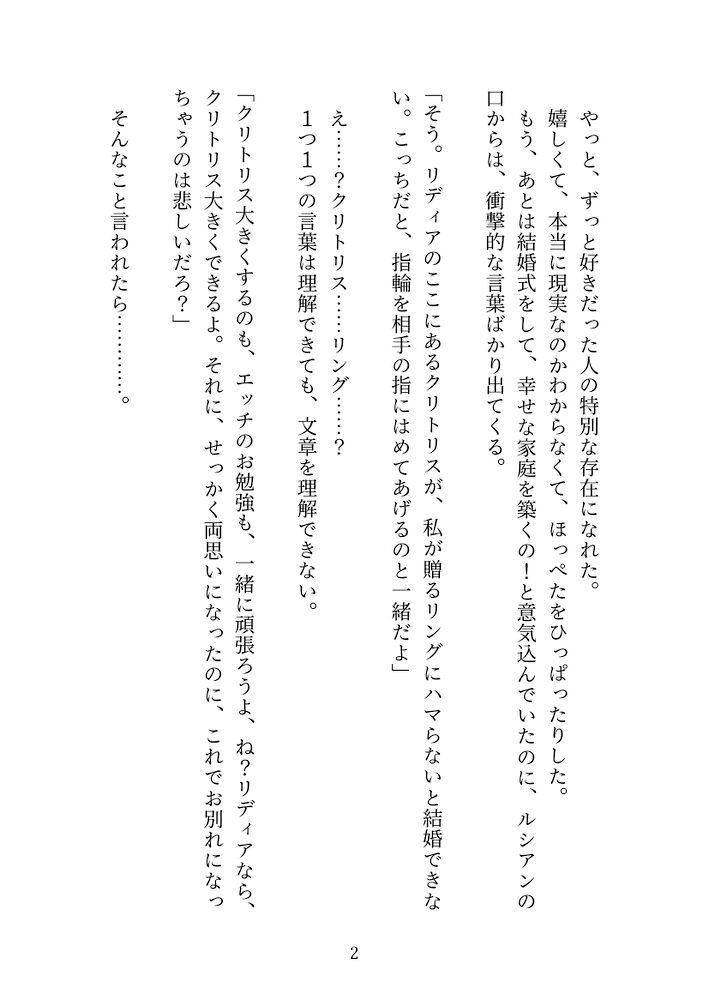 やっと、ずっと好きだった人の特別な存在になれた。
嬉しくて、本当に現実なのかわからなくて、ほっぺたをひっぱったりした。
もう、あとは結婚式をして、幸せな家庭を築くの！と意気込んでいたのに、ルシアンの
口からは、衝撃的な言葉ばかり出てくる。
「そう。リディアのここにあるクリトリスが、私が贈るリングにハマらないと結婚できな
い。こっちだと、指輪を相手の指にはめてあげるのと一緒だよ」
え……？クリトリス……リング……？
１つ１つの言葉は理解できても、文章を理解できない。
「クリトリス大きくするのも、エッチのお勉強も、一緒に頑張ろうよ、ね？リディアなら、
クリトリス大きくできるよ。それに、せっかく両思いになったのに、これでお別れになっ
ちゃうのは悲しいだろ？」
そんなこと言われたら…………。
2